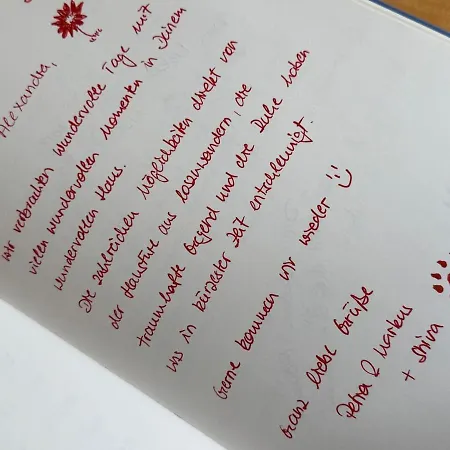 Alexandra,
wir verbrachten wundervolle Tage mit
vielen wundervollen Momenten in Deinem
wundervollen Haus.
Die zahlreichen Möglichkeiten direkt von
der Haustüre aus loszuwandern, die
traumhafte Gegend und die Ruhe haben
uns in kürzester Zeit entschleunigt.
Gerne kommen wir wieder :)
Ganz liebe Grüße
Petra & Markus
+ Shiva